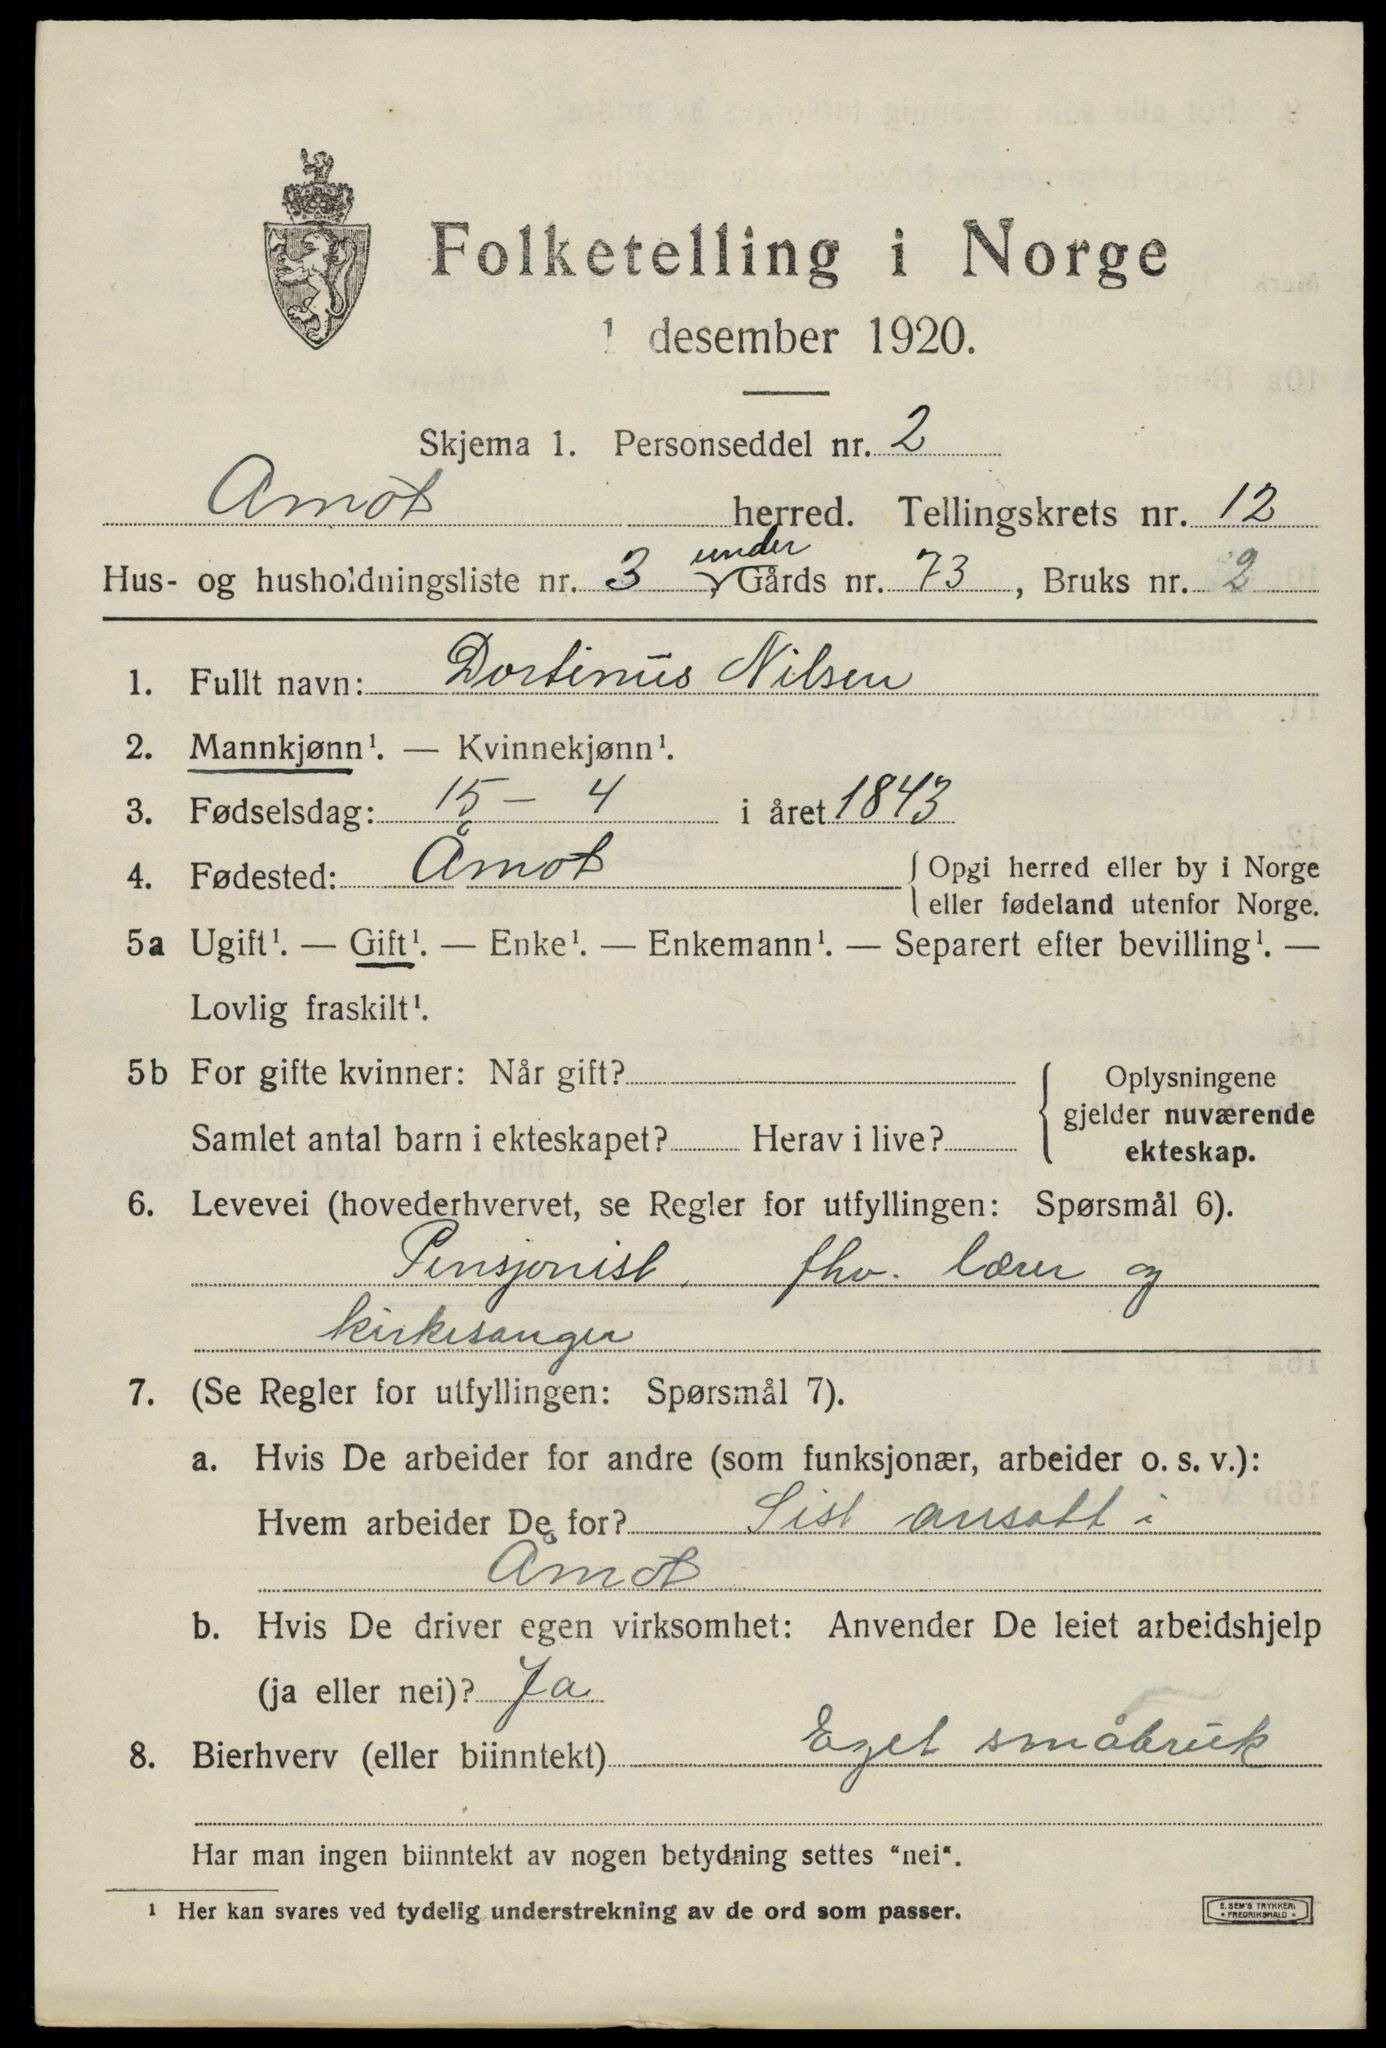 Folketelling i Norge
1 desember 1920.
Skjema 1. Personseddel nr. 2
Amot herred. Tellingskrets nr. 12
under
Hus- og husholdningsliste nr. 3, Gårds nr. 73, Bruks nr. 2
1. Fullt navn: Dortinus Nilsen
2. Mannkjønn¹. — Kvinnekjønn¹.
3. Fødselsdag: 15 - 4 i året 1843
4. Fødested: Åmot { Opgi herred eller by i Norge
eller fødeland utenfor Norge.
5a Ugift¹. — Gift¹. — Enke¹. — Enkemann¹. — Separert efter bevilling¹. —
Lovlig fraskilt¹.
5b For gifte kvinner: Når gift? { Oplysningene
gjelder nuværende
Samlet antal barn i ekteskapet? Herav i live?
ekteskap.
6. Levevei (hovederhvervet, se Regler for utfyllingen: Spørsmål 6).
Pensjonist, fhv. lærer og
kirkesanger
7. (Se Regler for utfyllingen: Spørsmål 7).
a. Hvis De arbeider for andre (som funksjonær, arbeider o. s. v.):
Hvem arbeider De for? Sist ansatt i
Åmot
b. Hvis De driver egen virksomhet: Anvender De leiet arbeidshjelp
(ja eller nei)? Ja
8. Bierhverv (eller biinntekt) Eget småbruk
Har man ingen biinntekt av nogen betydning settes "nei".
¹ Her kan svares ved tydelig understrekning av de ord som passer.
E. SEM'S TRYKKERI
FREDRIKSHALD